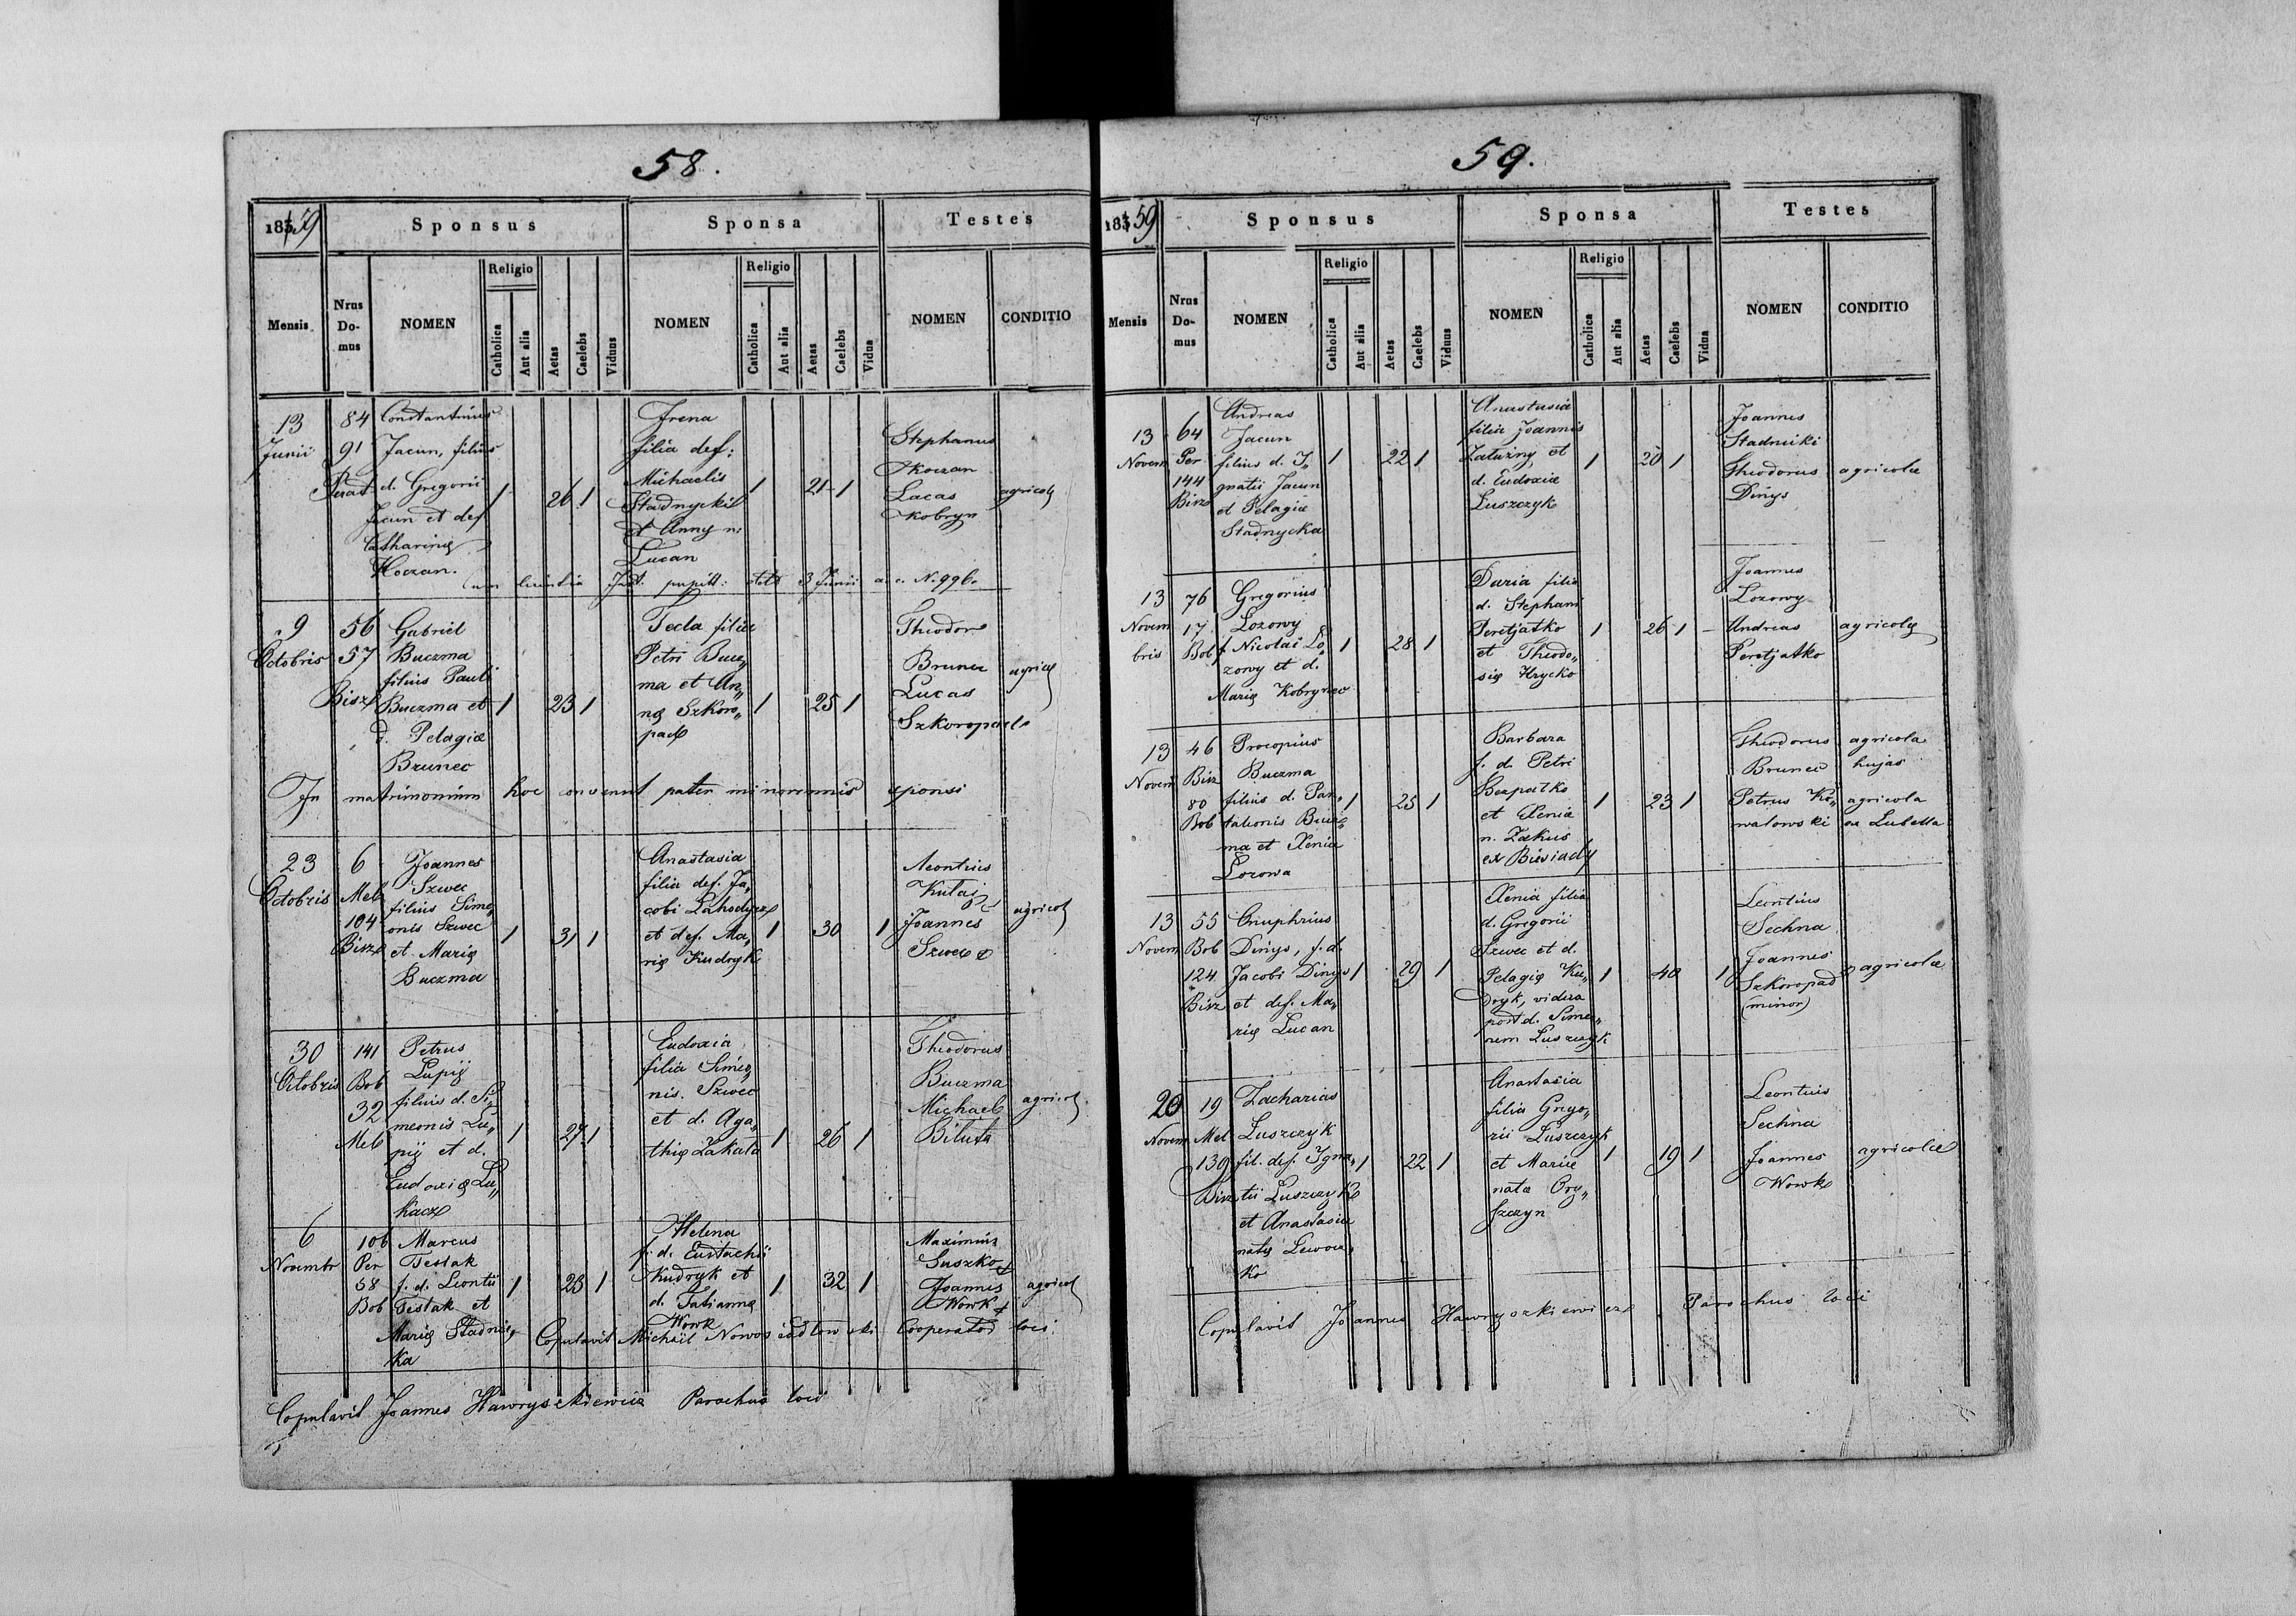 58.
1859 Sponsus Sponsa Testes
Mensis Nrus Do-mus NOMEN Religio Catholica Aut alia Aetas Caelebs Viduus NOMEN Religio Catholica Aut alia Aetas Caelebs Vidua NOMEN CONDITIO
13 Junii
84
91
Constantinus
Jacun, filius
d. Gregorii
Jacun et def
Catharinę
Koczan.
1 26 1
Irena
filia def:
Michaelis
Stadnycki
et Anny n.
Lucan
1 21 1
Stephanus
Koczan
Lucas
Kobryn
agricolę
3 Junii a. c. N. 996.
9 Octobris
56
57
Bisz
Gabriel
Buczma
filius Pauli
Buczma et
d. Pelagiæ
Brunec
1 23 1
Tecla filia
Petri Bucz„
ma et An„
nę Szkoro„
pad
1 25 1
Theodor
Brunec
Lucas
Szkoropad
agricolę
In matrimonium hoc convenit pater minorennis sponsi
23 Octobris
6
Meb
104
Bisz
Joannes
Szwec
filius Sime„
onis Szwec
et Marię
Buczma
1 31 1
Anastasia
filia def. Ja„
cobi
et def. Ma„
rię Kudryk
1 30 1
Leontius
Joannes
Szwec
agricolę
30 Octobris
141
Bob
32
Meb
Petrus
Lupij
filius d. Si„
meonis Lu„
pij et d.
Eudoxię Lu„
kacz
1 27 1
Eudoxia
filia Simeo„
nis. Szwec
et d. Aga„
thię Zakala
1 26 1
Theodorus
Buczma
Michael
Biluta
agricolę
6 Novembr
106
Per
58
Bob
Marcus
Testak
f. d. Leontii
Testak et
Marię Stadnic„
ka
1 23 1
Helena
f. d. Eustachii
Kudryk et
d. Tatiannę
Wowk
1 32 1
Maximus
Suszko
Joannes
Wowk
agricolę
Copulavit Michael Cooperator loci.
Copulavit Joannes Hawryszkiewicz Parochus loci
59.
1859 Sponsus Sponsa Testes
Mensis Nrus Do-mus NOMEN Religio Catholica Aut alia Aetas Caelebs Viduus NOMEN Religio Catholica Aut alia Aetas Caelebs Vidua NOMEN CONDITIO
13 Novem
64
Per
144
Bisz
Andreas
Jacun
filius d. I„
gnatii Jacun
et Pelagiæ
Stadnycka
1 22 1
Anastasia
filia Joannis
Zaluzny et
d. Eudoxiæ
Luszczyk
1 20 1
Joannes
Stadnicki
Theodorus
Dinys
agricolæ
13 Novembris
76
17
Bob
Gregorius
Lozowy
f. Nicolai Lo„
zowy et d.
Marię Kobryniec
1 28 1
Daria filia
d. Stephani
Peretjatko
et Theodo„
się Hrycko
1 26 1
Joannes
Lozowy
Andreas
Peretjatko
agricolę
13 Novem
46
Bisz
80
Bob
Procopius
Buczma
filius d. Pan„
taleonis Bucz„
ma et Xenia
Lozowa
1 25 1
Barbara
f. d. Petri
et Xenia
n.
ex Biesiady
1 23 1
Theodorus
Brunec
agricola hujas
Petrus Ko„
walowski
agricola ex Lubella
13 Novem
55
Bob
124
Bisz
Onuphrius
Dinys, f. d.
Jacobi Dinys
et def. Ma„
rię Lucan
1 29 1
Xenia filia
d. Gregorii
Szwec et d.
Pelagię Ku„
dryk, vidua
post d. Sime„
nem Luszczyk
1 40 1
Leontius
Sechna
Joannes
Szkoropad
(minor)
agricolæ
20 Novem
19
Mel
139
Bisz
Zacharias
Luszczyk
fil. def. Igna„
tii Luszczyk
et Anastasiæ
natę Lewocz„
ko
1 22 1
Anastasia
filia Grego„
rii Luszczyk
et Mariæ
nata Ory„
szczyn
1 19 1
Leontius
Sechna
Joannes
Wowk
agricolæ
Copulavit Joannes Hawryszkiewicz Parochus loci